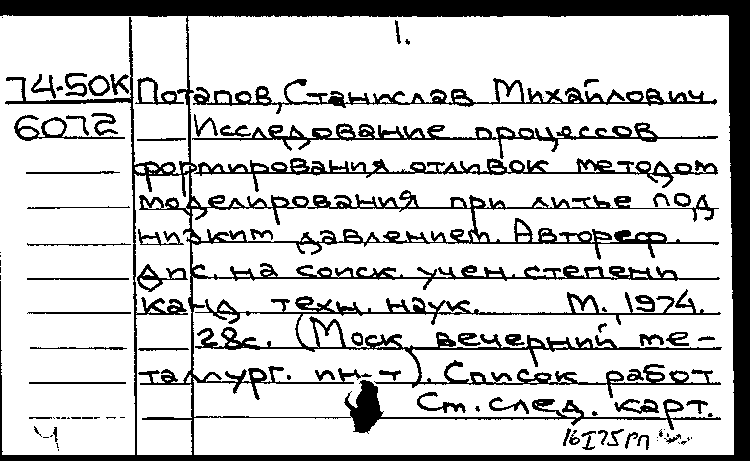 1.
74-50К Потапов, Станислав Михайлович.
6072 Исследование процессов
формирования отливок методом
моделирования при литье под
низким давлением. Автореф.
дис. на соиск. учен. степени
канд. техн. наук. М., 1974.
28с. (Моск. вечерний ме-
таллург. ин-т). Список работ
См. след. карт.
Ч 16 I 75 РП